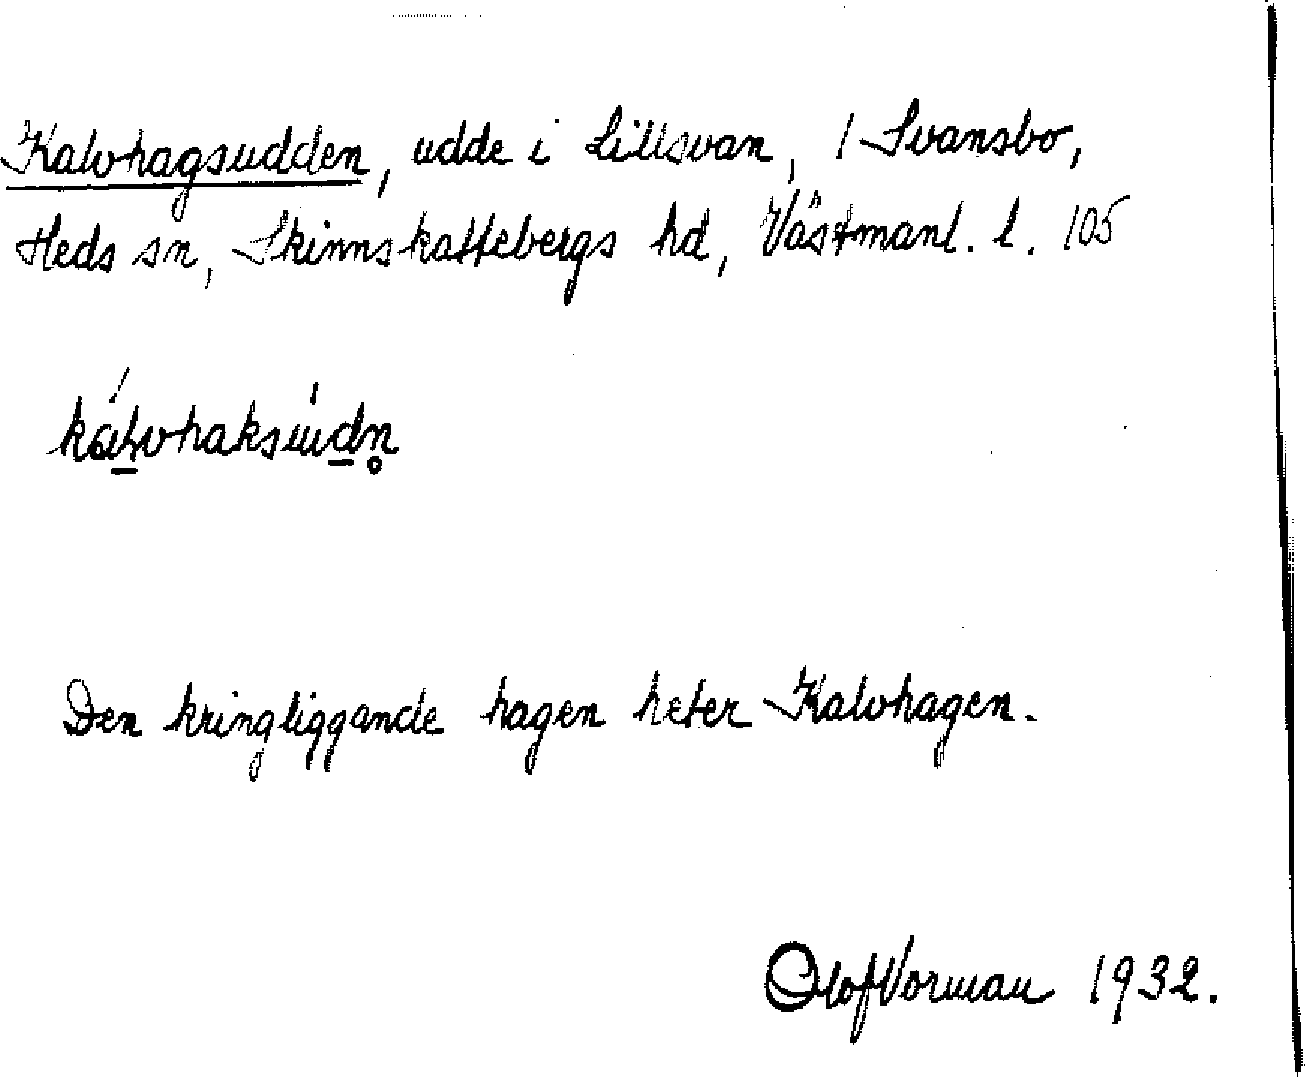 Kalvhagsudden, udde i Lillsvan, 1 Svansbo,
Heds sn, Skinnskattebergs hd, Västmanl. l. 105
kálvhaksùdn̥
Den kringliggande hagen heter Kalvhagen.
Olof Vorman 1932.